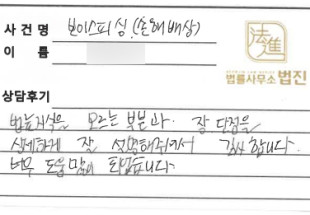 사 건 명 보이스피싱 (손해배상)
이 름
法進
법률사무소 법진
상담후기
법률지식을 모르는 부분과 장 단점을
상세하게 잘 설명해주셔서 감사합니다.
너무 도움많이 되었습니다